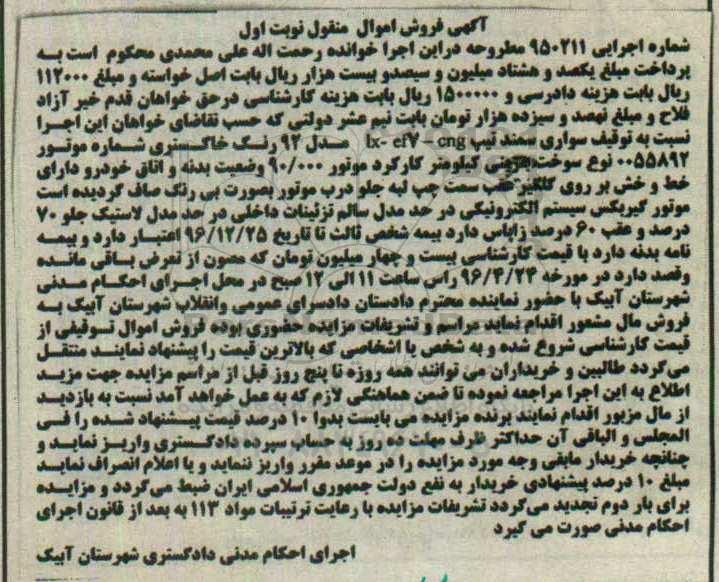 آگهی فروش اموال منقول نوبت اول
شماره اجرایی ۹۵۰۲۱۱ مطروحه دراین اجرا خوانده رحمت اله علی محمدی محکوم است به
پرداخت مبلغ یکصد و هشتاد میلیون و سیصدو بیست هزار ریال بابت اصل خواسته و مبلغ ۱۱۲۰۰۰
ریال بابت هزینه دادرسی و ۱۵۰۰۰۰۰ ریال بابت هزینه کارشناسی درحق خواهان قدم خیر آزاد
فلاح و مبلغ نهصد و سیزده هزار تومان بابت نیم عشر دولتی که حسب تقاضای خواهان این اجرا
نسبت به توقیف سواری سمند تیپ lx- ef۷ – cng مدل ۹۲ رنگ خاکستری شماره موتور
۰۰۵۵۸۹۲ نوع سوخت کیلومتر کارکرد موتور ۹۰/۰۰۰ وضعیت بدنه و اتاق خودرو دارای
خط و خش بر روی گلگیر عقب سمت چپ لبه جلو درب موتور بصورت بی رنگ صاف گردیده است
موتور گیربکس سیستم الکترونیکی در حد مدل سالم تزئینات داخلی در حد مدل لاستیک جلو ۷۰
درصد و عقب ۶۰ درصد زاپاس دارد بیمه شخص ثالث تا تاریخ ۹۶/۱۲/۲۵ اعتبار دارد و بیمه
نامه بدنه دارد با قیمت کارشناسی بیست و چهار میلیون تومان که مصون از تعرض باقی مانده
وقصد دارد در مورخه ۹۶/۴/۲۴ راس ساعت ۱۱ الی ۱۲ صبح در محل اجرای احکام مدنی
شهرستان آبیک با حضور نماینده محترم دادستان دادسرای عمومی وانقلاب شهرستان آبیک به
فروش مال مشعور اقدام نماید مراسم و تشریفات مزایده حضوری بوده فروش اموال توقیفی از
قیمت کارشناسی شروع شده و به شخص یا اشخاصی که بالاترین قیمت را پیشنهاد نمایند منتقل
می‌گردد طالبین و خریداران می توانند همه روزه تا پنج روز قبل از مراسم مزایده جهت مزید
اطلاع به این اجرا مراجعه نموده تا ضمن هماهنگی لازم که به عمل خواهد آمد نسبت به بازدید
از مال مزبور اقدام نمایند برنده مزایده می بایست بدوا ۱۰ درصد قیمت پیشنهاد شده را فی
المجلس و الباقی آن حداکثر ظرف مهلت ده روز به حساب سپرده دادگستری واریز نماید و
چنانچه خریدار مابقی وجه مورد مزایده را در موعد مقرر واریز ننماید و یا اعلام انصراف نماید
مبلغ ۱۰ درصد پیشنهادی خریدار به نفع دولت جمهوری اسلامی ایران ضبط می‌گردد و مزایده
برای بار دوم تجدید می‌گردد تشریفات مزایده با رعایت ترتیبات مواد ۱۱۳ به بعد از قانون اجرای
احکام مدنی صورت می گیرد
اجرای احکام مدنی دادگستری شهرستان آبیک